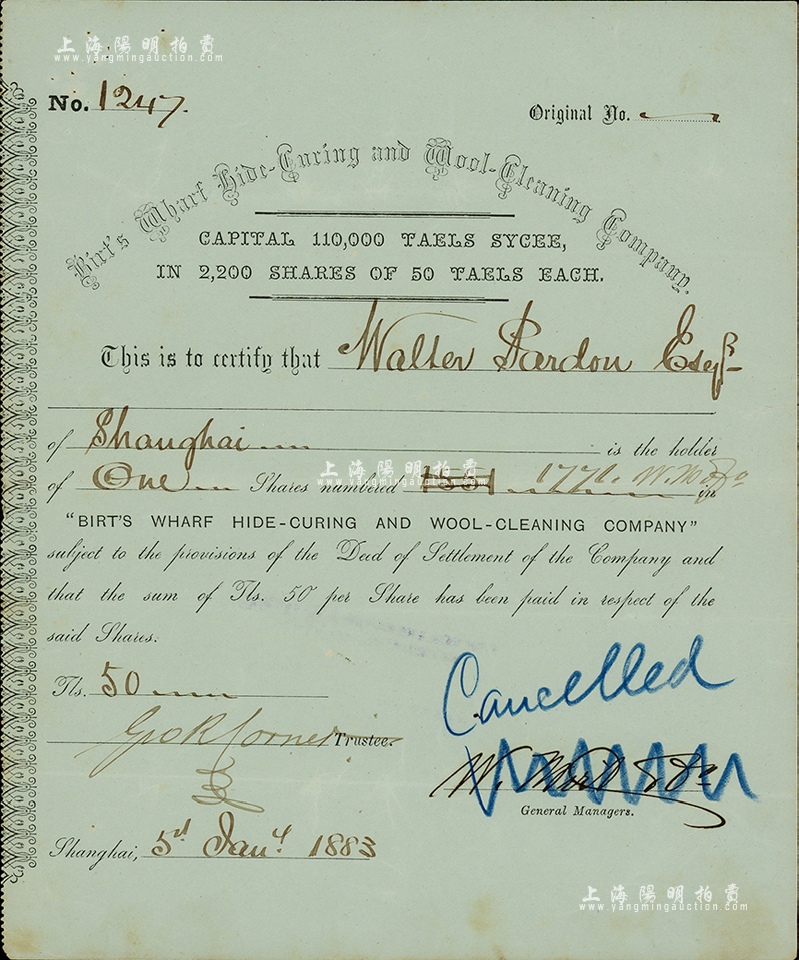 上海陽明拍賣
www.yangmingauction.com
No. 1247.
Original No.
Birt's Wharf Hide-Curing and Wool-Cleaning Company.
CAPITAL 110,000 TAELS SYCEE,
IN 2,200 SHARES OF 50 TAELS EACH.
This is to certify that Walter Pardon Esqr
of Shanghai is the holder
of One Shares numbered 1771. in
上海陽明拍賣
www.yangmingauction.com
"BIRT'S WHARF HIDE-CURING AND WOOL-CLEANING COMPANY"
subject to the provisions of the Deed of Settlement of the Company and
that the sum of Tls. 50 per Share has been paid in respect of the
said Shares.
Cancelled
Tls. 50
Geo R Corner Trustee.
W. Birt & Co
General Managers.
Shanghai, 5d Jany 1883
上海陽明拍賣
www.yangmingauction.com